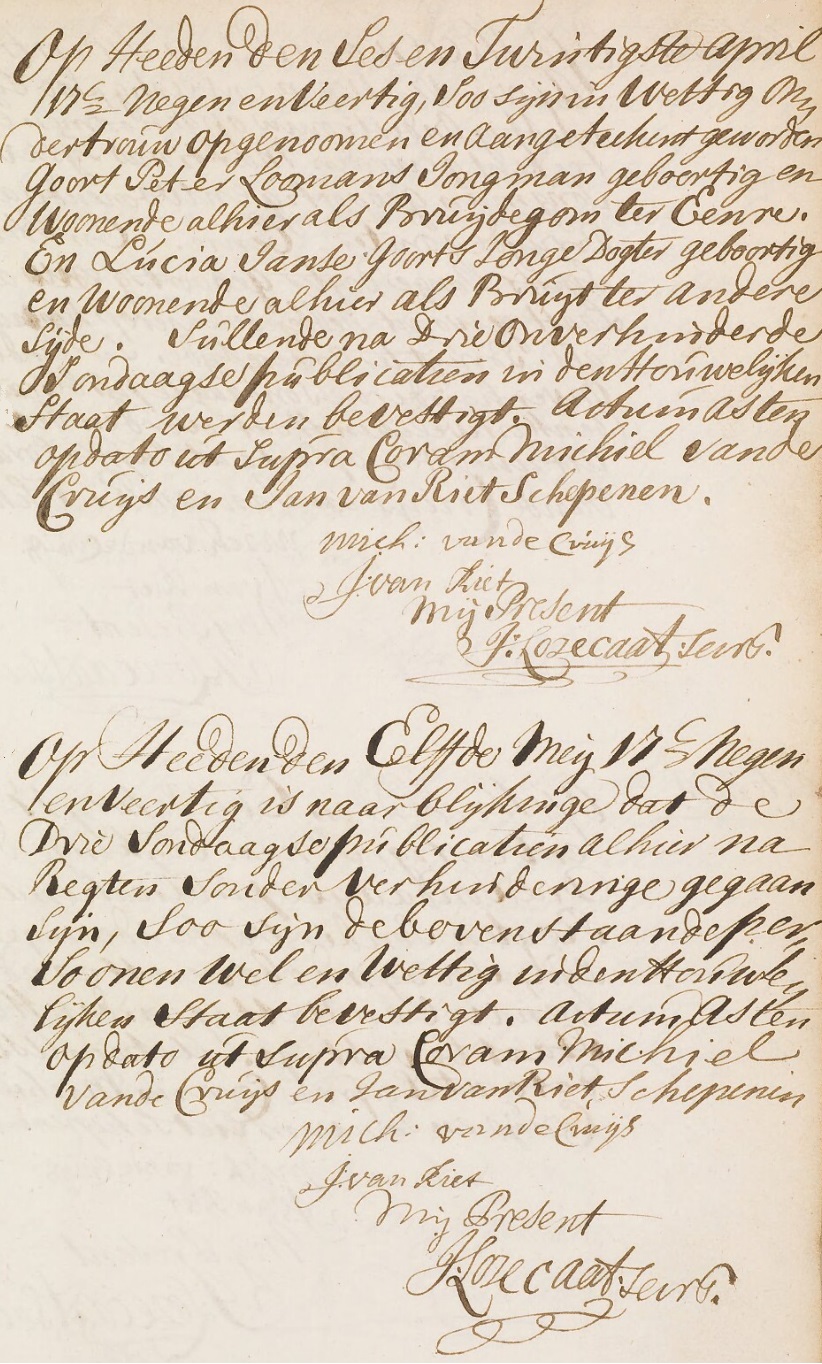 Op Heeden den Ses en Twintigste April
17C Negen en Veertig, Soo sijn in Wettig On„
dertrouw opgenoomen en aangeteekent geworden
Goort Peter Loomans Jongman geboortig en
Woonende alhier als Bruijdegom ter Eenre.
En Lucia Janse Goorts Jonge Dogter geboortig
en Woonende alhier als Bruijt ter andere
sijde. Sullende na Drie Onverhinderde
Sondaagse publicatien in den Houwelijken
Staat werden bevestigt. Actum Asten
op dato ut supra Coram Michiel vande
Cruijs en Jan van Riet Schepenen.
Mich: vande Cruijs
J. van Riet
Mij Present
J: Lozecaat, Secrs.
Op Heeden den Elffde Meij 17C Negen
en Veertig is naar blijkinge dat de
Drie Sondaagse publicatien alhier na
Regten Sonder Verhinderinge gegaan
sijn, Soo sijn de bovenstaande per„
Soonen Wel en Wettig in den Houwe„
lijken Staat bevestigt. Actum Asten
op dato ut supra Coram Michiel
vande Cruijs en Jan van Riet Schepenen
Mich: vande Cruijs
J. van Riet
Mij Present
J: Lozecaat: Secrs.